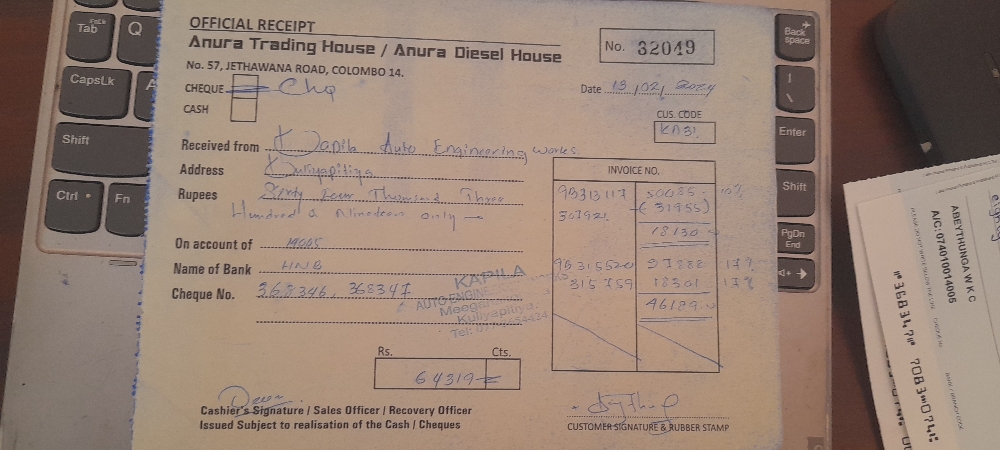 OFFICIAL RECEIPT
Anura Trading House / Anura Diesel House
No. 57, JETHAWANA ROAD, COLOMBO 14.
No. 32049
CHEQUE Chq
CASH
Date 13/02/2024
CUS. CODE
KA31
Received from Kapila Auto Engineering works.
Address Kuliyapitiya
Rupees Sixty Four Thousand Three
Hundred & Nineteen only
On account of
Name of Bank HNB
Cheque No. 368346, 368347
INVOICE NO.
95313117 50085
(31955)
18130
27888 17%
315759 18301 17%
46189
KAPILA
AUTO ENGINE
Kuliyapitiya
Tel:
Rs. Cts.
64319
Cashier's Signature / Sales Officer / Recovery Officer
Issued Subject to realisation of the Cash / Cheques
CUSTOMER SIGNATURE & RUBBER STAMP
ABEYTHUNGA W K C
A/C: 074010014005
Tab
Q
CapsLk
A
Shift
Ctrl
Fn
Back space
Enter
Shift
PgDn
End